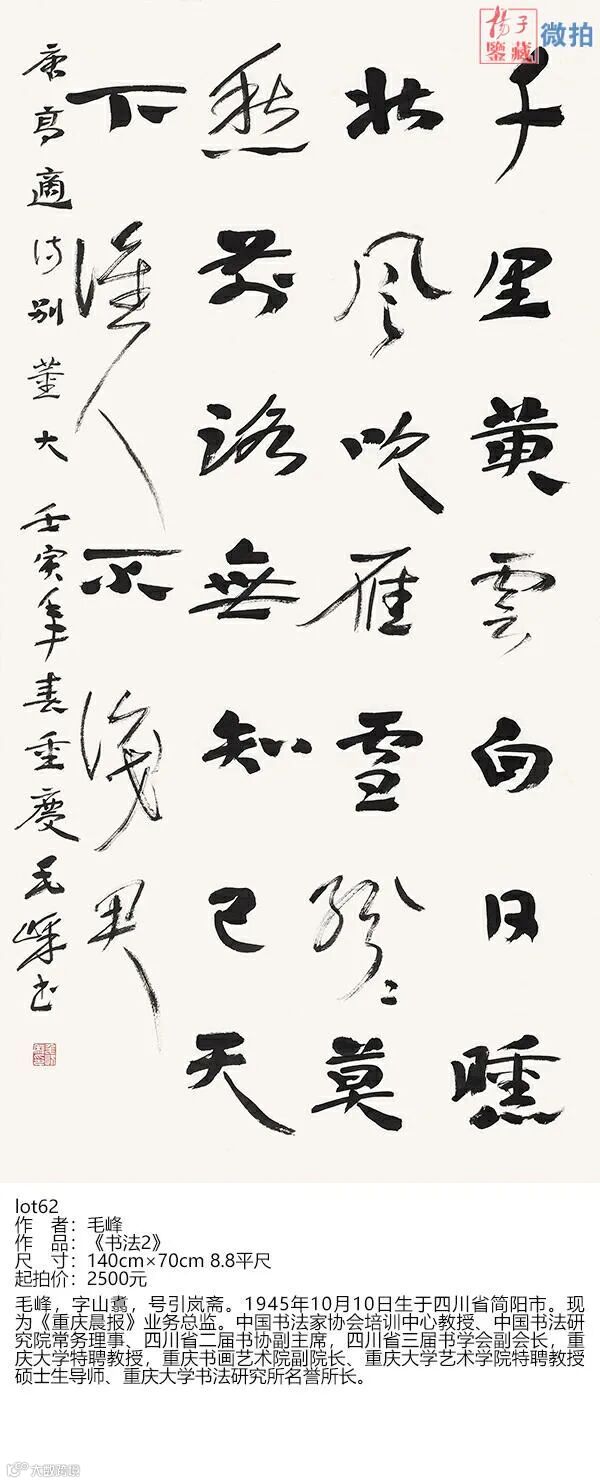 揚子
鑒藏
微拍
千里黄雲白日曛
北风吹雁雪紛〻莫
愁前路無知己天
下誰人不識君
唐高適诗别董大 壬寅年春重慶毛峰书
lot62
作 者：毛峰
作 品：《书法2》
尺 寸：140cm×70cm 8.8平尺
起拍价：2500元
毛峰，字山翥，号引岚斋。1945年10月10日生于四川省简阳市。现
为《重庆晨报》业务总监。中国书法家协会培训中心教授、中国书法研
究院常务理事、四川省二届书协副主席，四川省三届书学会副会长，重
庆大学特聘教授，重庆书画艺术院副院长、重庆大学艺术学院特聘教授
硕士生导师、重庆大学书法研究所名誉所长。
大数跨境